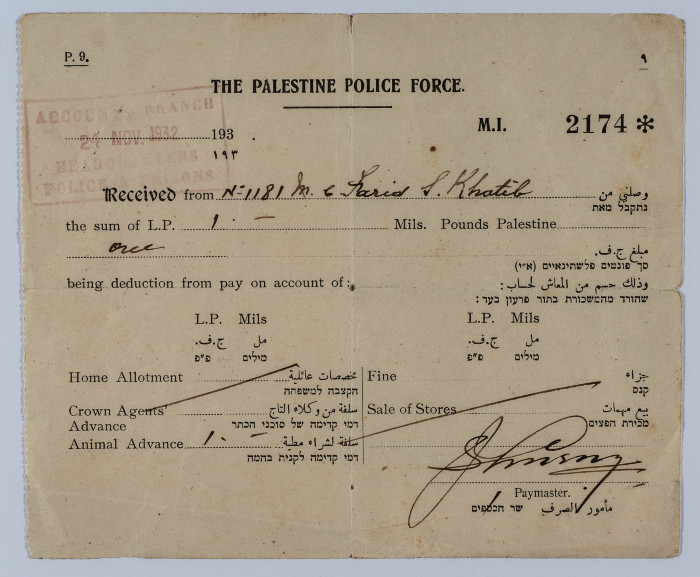 P. 9.
٩
THE PALESTINE POLICE FORCE.
M.I. 2174 *
ACCOUNTS BRANCH
24 NOV. 1932
HEADQUARTERS
POLICE & PRISONS
193
١٩٣
Received from No 1181 M. C Farid S. Khatib وصلني من
נתקבל מאת
the sum of L.P. 1. — Mils. Pounds Palestine
one مبلغ ج.ف.
סך פונטים פלשתינאיים (א״י)
being deduction from pay on account of: وذلك حسم من المعاش لحساب:
שהורד מהמשכורת בתור פרעון בעד:
L.P. Mils L.P. Mils
مل ج.ف. مل ج.ف.
מילים פ״פ מילים פ״פ
Home Allotment مخصصات عائلية Fine جزاء
הקצבה למשפחה קנס
Crown Agents' سلفة من وكلاء التاج Sale of Stores بيع مهمات
Advance דמי קדימה של סוכני הכתר מכירת חפצים
Animal Advance 1. — سلفة لشراء مطية
דמי קדימה לקנית בהמה
Paymaster.
مأمور الصرف שר הכספים